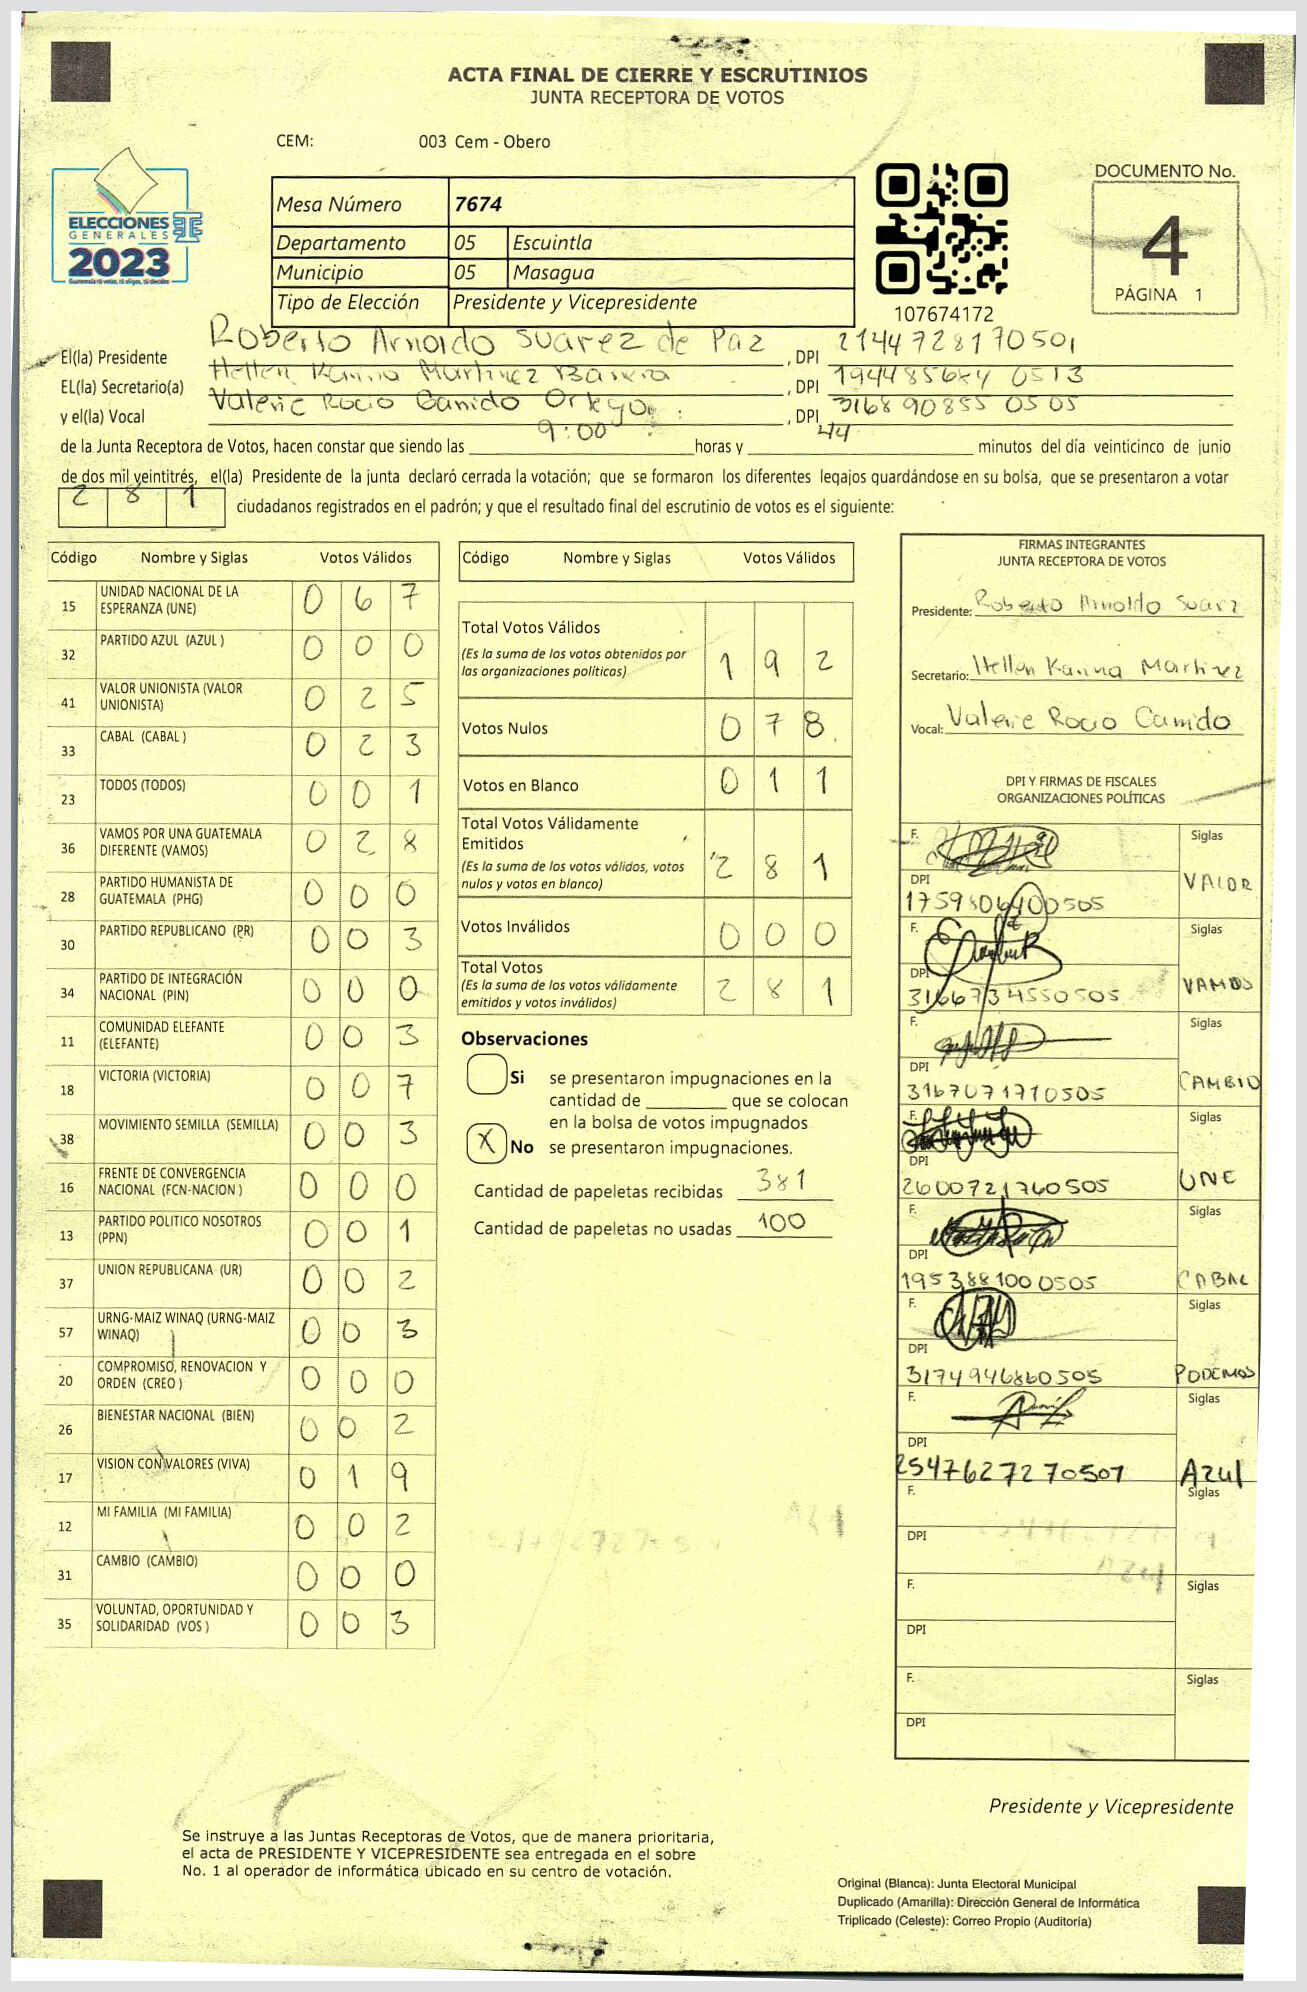 ACTA FINAL DE CIERRE Y ESCRUTINIOS
JUNTA RECEPTORA DE VOTOS
CEM: 003 Cem - Obero
ELECCIONES
GENERALES
2023
Mesa Número 7674
Departamento 05 Escuintla
Municipio 05 Masagua
Tipo de Elección Presidente y Vicepresidente
107674172
DOCUMENTO No.
4
PÁGINA 1
El(la) Presidente Roberto Arnoldo Suarez de Paz, DPI 2144728170501
EL(la) Secretario(a) Hellen Karina Martinez, DPI
y el(la) Vocal Valerie Rocio Garrido Ortego, DPI 3168908550505
de la Junta Receptora de Votos, hacen constar que siendo las 9:00 horas y 44 minutos del día veinticinco de junio
de dos mil veintitrés, el(la) Presidente de la junta declaró cerrada la votación; que se formaron los diferentes legajos guardándose en su bolsa, que se presentaron a votar
281 ciudadanos registrados en el padrón; y que el resultado final del escrutinio de votos es el siguiente:
Código Nombre y Siglas Votos Válidos
15 UNIDAD NACIONAL DE LA ESPERANZA (UNE) 0 6 7
32 PARTIDO AZUL (AZUL ) 0 0 0
41 VALOR UNIONISTA (VALOR UNIONISTA) 0 2 5
33 CABAL (CABAL ) 0 2 3
23 TODOS (TODOS) 0 0 1
36 VAMOS POR UNA GUATEMALA DIFERENTE (VAMOS) 0 2 8
28 PARTIDO HUMANISTA DE GUATEMALA (PHG) 0 0 0
30 PARTIDO REPUBLICANO (PR) 0 0 3
34 PARTIDO DE INTEGRACIÓN NACIONAL (PIN) 0 0 0
11 COMUNIDAD ELEFANTE (ELEFANTE) 0 0 3
18 VICTORIA (VICTORIA) 0 0 7
38 MOVIMIENTO SEMILLA (SEMILLA) 0 0 3
16 FRENTE DE CONVERGENCIA NACIONAL (FCN-NACION ) 0 0 0
13 PARTIDO POLITICO NOSOTROS (PPN) 0 0 1
37 UNION REPUBLICANA (UR) 0 0 2
57 URNG-MAIZ WINAQ (URNG-MAIZ WINAQ) 0 0 3
20 COMPROMISO, RENOVACION Y ORDEN (CREO ) 0 0 0
26 BIENESTAR NACIONAL (BIEN) 0 0 2
17 VISION CON VALORES (VIVA) 0 1 9
12 MI FAMILIA (MI FAMILIA) 0 0 2
31 CAMBIO (CAMBIO) 0 0 0
35 VOLUNTAD, OPORTUNIDAD Y SOLIDARIDAD (VOS ) 0 0 3
Código Nombre y Siglas Votos Válidos
Total Votos Válidos
(Es la suma de los votos obtenidos por
las organizaciones políticas) 1 9 2
Votos Nulos 0 7 8
Votos en Blanco 0 1 1
Total Votos Válidamente
Emitidos
(Es la suma de los votos válidos, votos
nulos y votos en blanco) 2 8 1
Votos Inválidos 0 0 0
Total Votos
(Es la suma de los votos válidamente
emitidos y votos inválidos) 2 8 1
Observaciones
Si se presentaron impugnaciones en la
cantidad de ________ que se colocan
en la bolsa de votos impugnados
X No se presentaron impugnaciones.
Cantidad de papeletas recibidas 381
Cantidad de papeletas no usadas 100
FIRMAS INTEGRANTES
JUNTA RECEPTORA DE VOTOS
Presidente: Roberto Arnoldo Suarz
Secretario: Hellen Karina Martinez
Vocal: Valerie Rocio Garrido
DPI Y FIRMAS DE FISCALES
ORGANIZACIONES POLÍTICAS
F. Siglas
DPI VALOR
1759806400505
F. Siglas
DPI VAMOS
3166734550505
F. Siglas
DPI CAMBIO
3167071710505
F. Siglas
DPI UNE
2600721760505
F. Siglas
DPI CABAL
1953881000505
F. Siglas
DPI PODEMOS
3174946860505
F. Siglas
DPI
2547627270507 Azul
F. Siglas
DPI
F. Siglas
DPI
F. Siglas
DPI
Presidente y Vicepresidente
Se instruye a las Juntas Receptoras de Votos, que de manera prioritaria,
el acta de PRESIDENTE Y VICEPRESIDENTE sea entregada en el sobre
No. 1 al operador de informática ubicado en su centro de votación.
Original (Blanca): Junta Electoral Municipal
Duplicado (Amarilla): Dirección General de Informática
Triplicado (Celeste): Correo Propio (Auditoría)